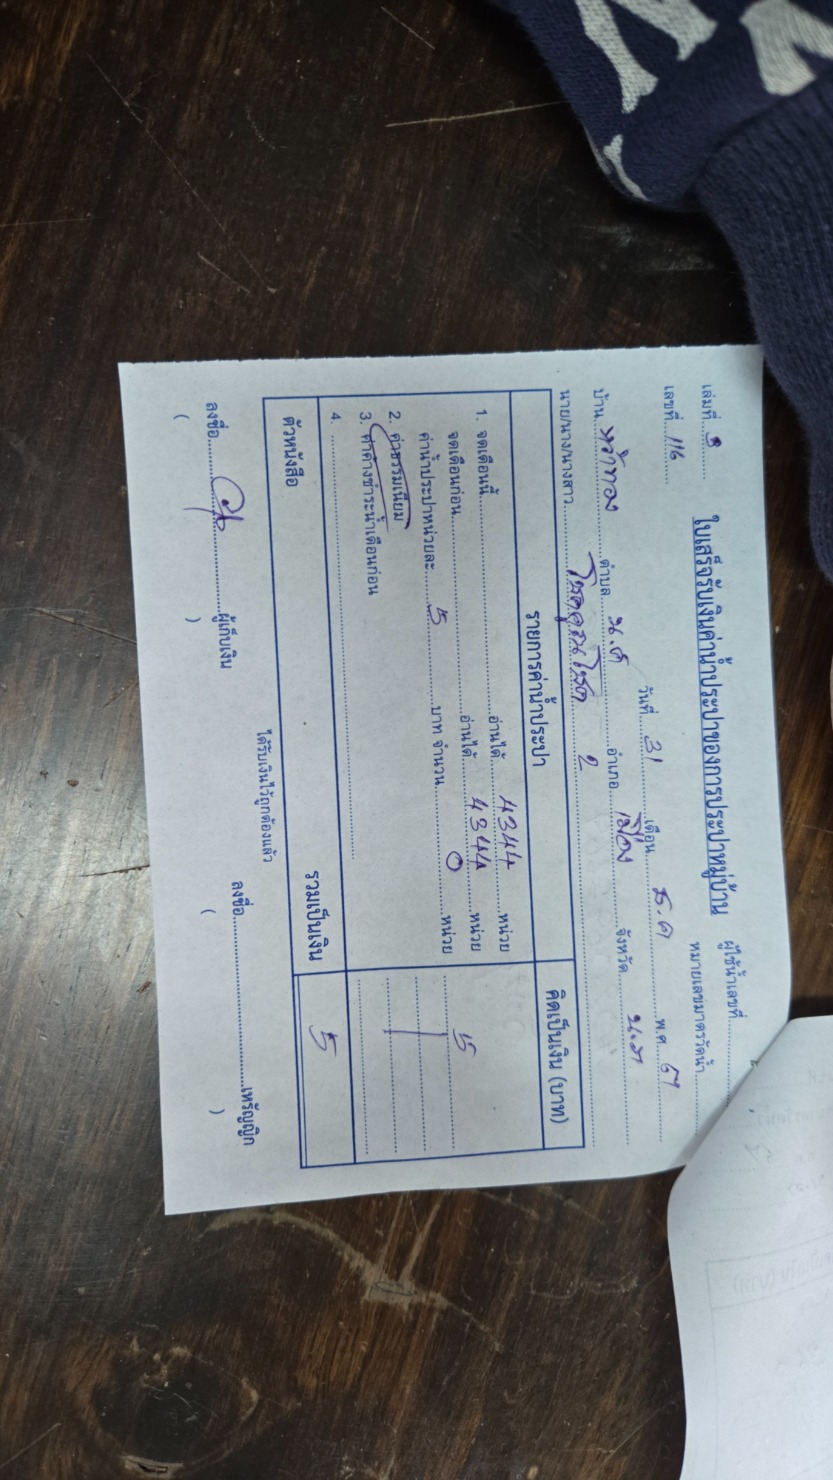 เล่มที่ 8
ใบเสร็จรับเงินค่าน้ำประปาของการประปาหมู่บ้าน
ผู้ใช้น้ำเลขที่
เลขที่ 116
หมายเลขมาตรวัดน้ำ
วันที่ 31 เดือน ธ.ค พ.ศ. 67
บ้าน ตำบล น.ต อำเภอ เมือง จังหวัด
นาย/นาง/นางสาว 2
รายการค่าน้ำประปา คิดเป็นเงิน (บาท)
1. จดเดือนนี้ อ่านได้ 4344 หน่วย
จดเดือนก่อน อ่านได้ 4344 หน่วย 5
ค่าน้ำประปาหน่วยละ 5 บาท จำนวน 0 หน่วย
2. ค่าธรรมเนียม
3. ค่าค้างชำระน้ำเดือนก่อน
4.
ตัวหนังสือ รวมเป็นเงิน 5
ได้รับเงินไว้ถูกต้องแล้ว
ลงชื่อ ผู้เก็บเงิน ลงชื่อ เหรัญญิก
( ) ( )